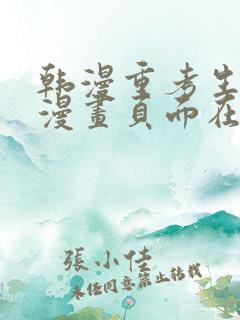 韩漫重考生
漫畫頁而在
張小佳
未经同意禁止转载